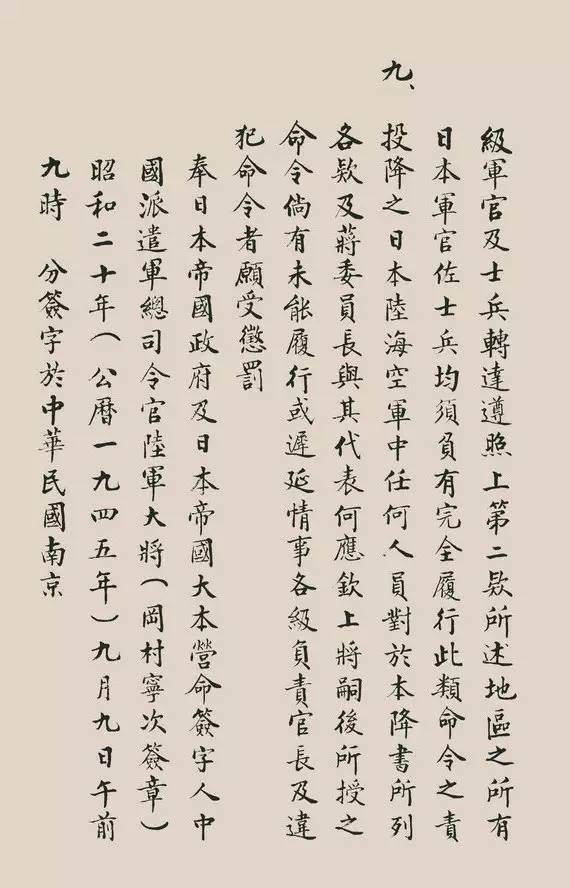 級軍官及士兵轉達遵照上第二欵所述地區之所有
日本軍官佐士兵均須負有完全履行此類命令之責
九、投降之日本陸海空軍中任何人員對於本降書所列
各欵及蔣委員長與其代表何應欽上將嗣後所授之
命令倘有未能履行或遲延情事各級負責官長及違
犯命令者願受懲罰
奉日本帝國政府及日本帝國大本營命簽字人中
國派遣軍總司令官陸軍大將(岡村寧次簽章)
昭和二十年(公曆一九四五年)九月九日午前
九時　分簽字於中華民國南京